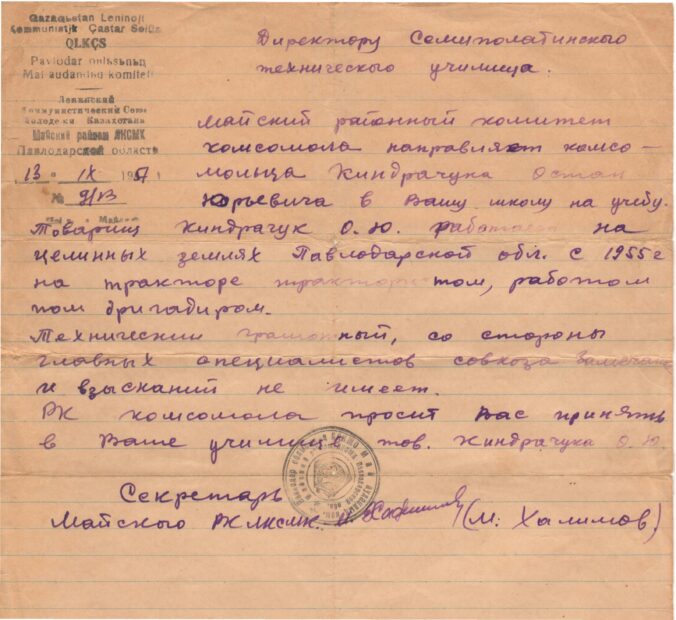 Qazaqstan Leninçil
Kommunistik Çastar Sojuz
QLKÇS
Pavlodar oblьsьnьꞑ
Maj audandьq komiteti
Ленинский
Коммунистический Союз
Молодежи Казахстана
Майский райком ЛКСМК
Павлодарской области
13 " IX 1957
№ 9/13
Директору Семиполатинского
технического училища.
Майский районный комитет
комсомола направляет комсо-
мольца Киндрачука Остап
Юрьевича в Вашу школу на учебу.
Товарищ Киндрачук О. Ю. работает на
целинных землях Павлодарской обл. с 1955 г
на тракторе трактористом, работал
пом бригадиром.
Технически грамотный, со стороны
главных специалистов совхоза замечаний
и взысканий не имеет.
РК комсомола просит Вас принять
в Ваше училище тов. Киндрачука О. Ю.
Секретарь
Майского РК ЛКСМК. (М. Халимов.)